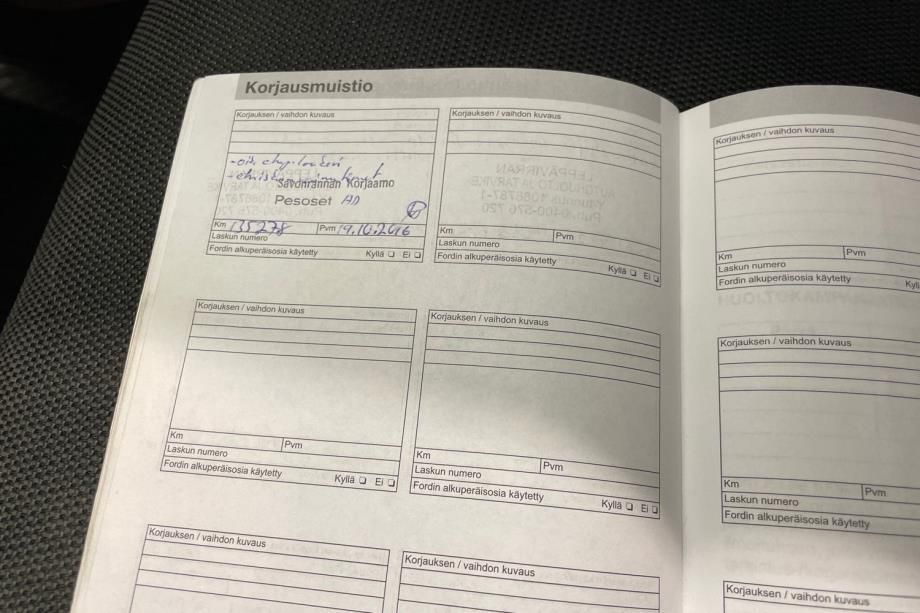 Korjausmuistio
Korjauksen / vaihdon kuvaus
Savonrannan Korjaamo
Pesoset AD
Km 135278 Pvm 19.10.2016
Laskun numero
Fordin alkuperäisosia käytetty Kyllä ❏ Ei ❏
Korjauksen / vaihdon kuvaus
LEPPÄVIRRAN
AUTOHUOLTO JA TARVIKE
Y-tunnus 1086787-1
Puh. 0400-576 720
Km Pvm
Laskun numero
Fordin alkuperäisosia käytetty Kyllä ❏ Ei ❏
Korjauksen / vaihdon kuvaus
Km Pvm
Laskun numero
Fordin alkuperäisosia käytetty Kyllä ❏ Ei ❏
Korjauksen / vaihdon kuvaus
Km Pvm
Laskun numero
Fordin alkuperäisosia käytetty Kyllä ❏ Ei ❏
Korjauksen / vaihdon kuvaus
Korjauksen / vaihdon kuvaus
Korjauksen / vaihdon kuvaus
Km Pvm
Laskun numero
Fordin alkuperäisosia käytetty Kyll
Korjauksen / vaihdon kuvaus
Km Pvm
Laskun numero
Fordin alkuperäisosia käytetty
Korjauksen / vaihdon kuvaus